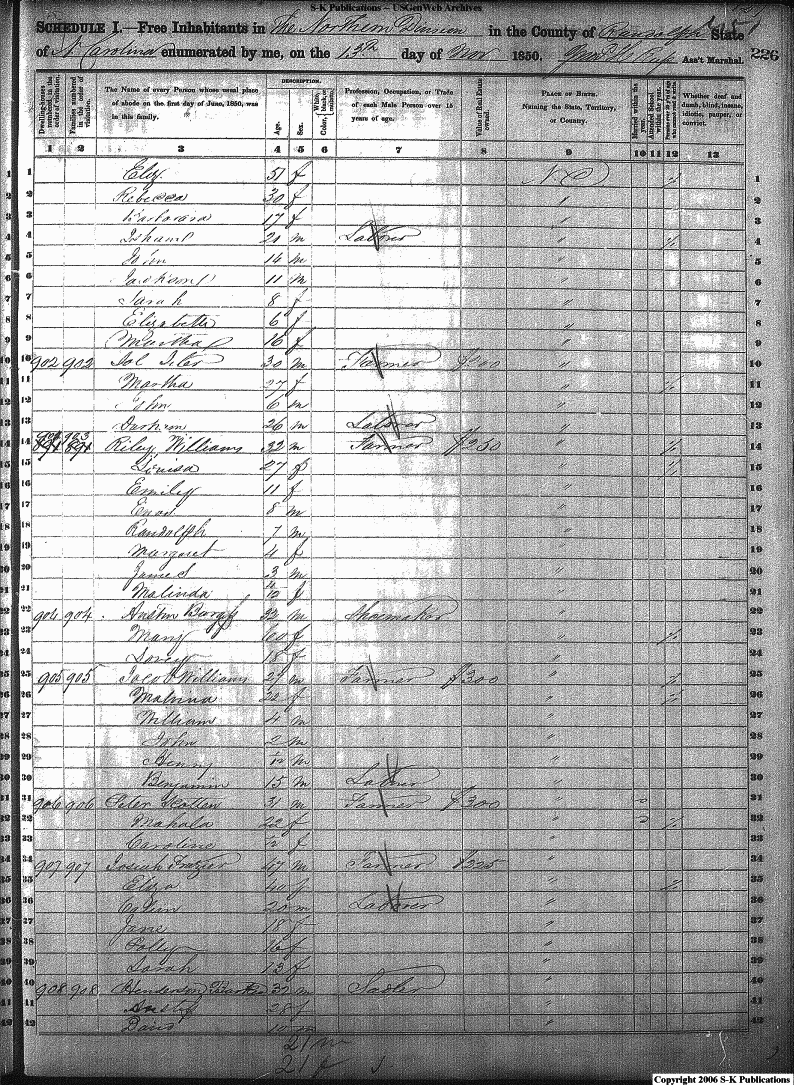 S-K Publications – USGenWeb Archives
SCHEDULE I.—Free Inhabitants in The Northern Division in the County of Randolph State
of N. Carolina enumerated by me, on the 13th day of Nov 1850. Ass't Marshal. 226
Dwelling-houses numbered in the order of visitation. Families numbered in the order of visitation. The Name of every Person whose usual place of abode on the first day of June, 1850, was in this family. DESCRIPTION. Age. Sex. Color, White, black, or mulatto. Profession, Occupation, or Trade of each Male Person over 15 years of age. Value of Real Estate owned. PLACE OF BIRTH. Naming the State, Territory, or Country. Married within the year. Attended School within the year. Persons over 20 y'rs of age who cannot read & write. Whether deaf and dumb, blind, insane, idiotic, pauper, or convict.
1 2 3 4 5 6 7 8 9 10 11 12 13
1 51 f N C / 1
2 Rebecca 30 f " 2
3 Barbara 17 f " 3
4 Isham 20 m Laborer " / 4
5 John 14 m " 5
6 Jackson 11 m " 6
7 Sarah 8 f " 7
8 Elizabeth 6 f " 8
9 Martha 16 f " 9
10 902 902 30 m Farmer $200 " 10
11 Martha 27 f " / 11
12 John 6 m " 12
13 26 m Laborer " 13
14 Riley Williams 32 m Farmer $250 " / 14
15 Louisa 27 f " / 15
16 Emily 11 f " 16
17 8 m " 17
18 Randolph 7 m " 18
19 Margaret 4 f " 19
20 James 3 m " 20
21 Malinda f " 21
22 904 904 Austin 32 m Shoemaker " 22
23 Mary 60 f " / 23
24 18 f " 24
25 905 905 Jacob Williams 27 m Farmer $300 " / 25
26 f " / 26
27 William 4 m " 27
28 John 2 m " 28
29 Henry m " 29
30 Benjamin 15 m Laborer " 30
31 906 906 Peter Scotten 31 m Farmer $300 " 31
32 Mahala 22 f " / 32
33 Caroline f " 33
34 907 907 Josiah Frazier 47 m Farmer $325 " 34
35 Eliza 40 f " / 35
36 20 m Laborer " 36
37 Jane 18 f " 37
38 Polly 16 f " 38
39 Sarah 13 f " 39
40 908 908 Henderson 32 m " 40
41 28 f " 41
42 10 m " 42
21 m
21 f
Copyright 2006 S-K Publications